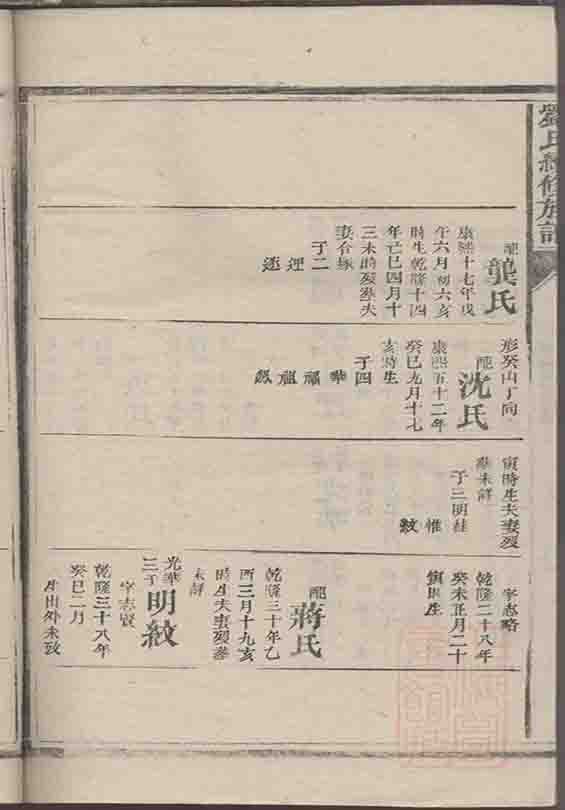 劉氏續修族譜
配龔氏
康熙十七年戊
午六月初六亥
時生乾隆十四
年己巳四月十
三未時歿葬夫
妻合塚
子二
形癸山丁向
配沈氏
康熙五十二年
癸巳九月十七
亥時生
子四
寅時生夫妻歿
葬未詳
子三明
惟
紋
字志略
乾隆二十八年
癸未正月二十
寅時生
配蔣氏
乾隆三十年乙
酉三月十九亥
時生夫妻歿葬
未詳
光華
三子明紋
字志賢
乾隆三十八年
癸巳二月
生出外未致